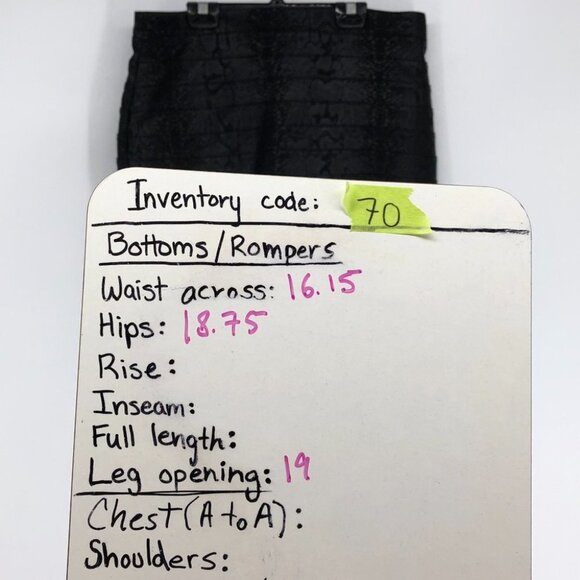 Inventory code: 70
Bottoms/Rompers
Waist across: 16.15
Hips: 18.75
Rise:
Inseam:
Full length:
Leg opening: 19
Chest (A to A):
Shoulders: